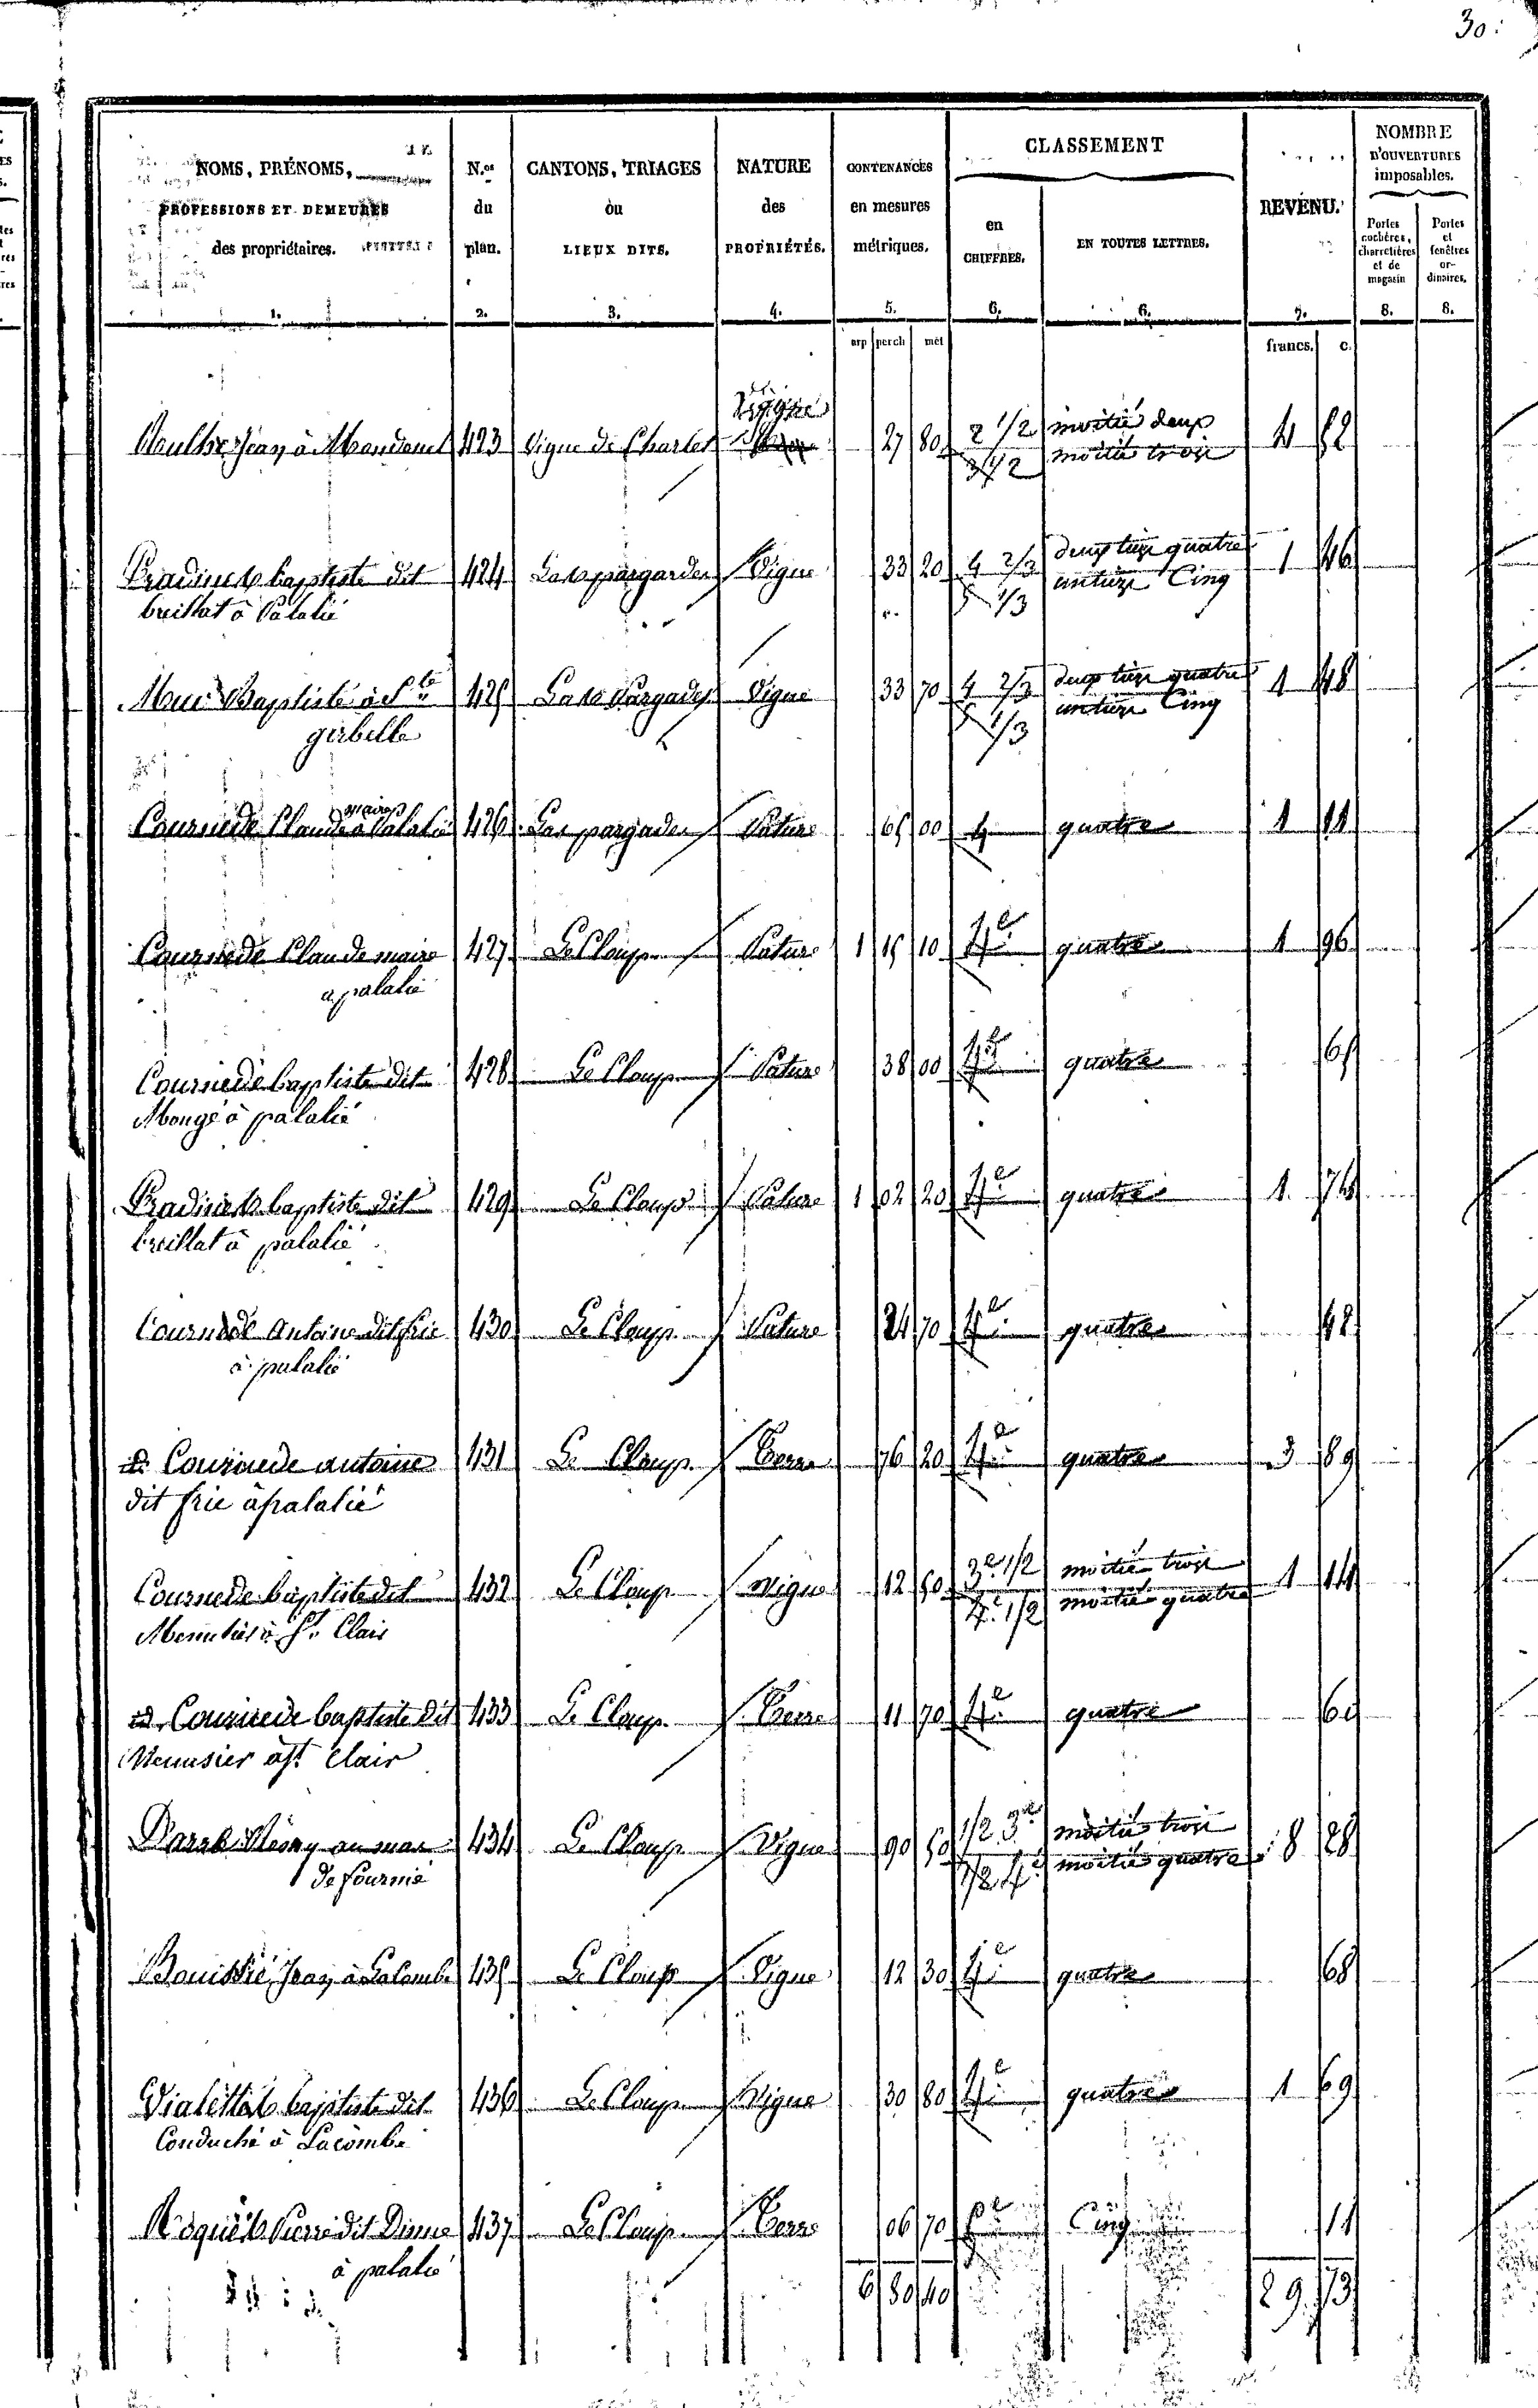 30.
NOMS, PRÉNOMS,
PROFESSIONS ET DEMEURES
des propriétaires.
N.os du plan.
CANTONS, TRIAGES
ou
LIEUX DITS.
NATURE
des
PROPRIÉTÉS.
CONTENANCES
en mesures
métriques.
CLASSEMENT
en CHIFFRES.
EN TOUTES LETTRES.
REVENU.
NOMBRE
D'OUVERTURES
imposables.
Portes cochères, charretières et de magasin
Portes et fenêtres or-dinaires.
1. 2. 3. 4. 5. 6. 6. 7. 8. 8.
arp perch mèt francs. c.
Jean à 423 Vigne de Charles Vigne 27 80 2 1/2 moitié deux 4 52
3 1/2 moitié trois
Pradines baptiste dit 424 Vigne 33 20 4 2/3 deux tiers quatre 1 46
breillat à Palalié 5 1/3 un tiers Cinq
Baptiste à Ste 425 Vigne 33 70 4 2/3 deux tiers quatre 1 48
girbelle 5 1/3 un tiers Cinq
Cournede Claude maire à Palalié 426 Las pargades Pature 65 00 4 quatre 1 11
Cournede Claude maire 427 Le Cloup Pature 1 15 10 4e quatre 1 96
a palalié
Cournede baptiste dit 428 Le Cloup Pature 38 00 4e quatre 65
Monge à palalié
Pradines baptiste dit 429 Le Cloup Pature 1 02 20 4e quatre 1 74
breillat à palalié
Cournede Antoine dit frie 430 Le Cloup Pature 24 70 4e quatre 42
à palalié
id. Cournede antoine 431 Le Cloup Terre 76 20 4e quatre 3 89
dit frie à palalié
Cournede baptiste dit 432 Le Cloup Vigne 12 50 3e 1/2 moitié trois 1 14
Menusier à St. Clair 4e 1/2 moitié quatre
id. Cournede baptiste dit 433 Le Cloup Terre 11 70 4e quatre 60
Menusier à St. Clair
au mas 434 Le Cloup Vigne 90 50 1/2 3e moitié trois 8 28
de fournié 1/2 4e moitié quatre
Bouissié Jean à Lacombe 435 Le Cloup Vigne 12 30 4e quatre 68
Vialettes baptiste dit 436 Le Cloup Vigne 30 80 4e quatre 1 69
Conduché à Lacombe
Pierre dit 437 Le Cloup Terre 06 70 5e Cinq 11
à palalié
6 80 40 29 73